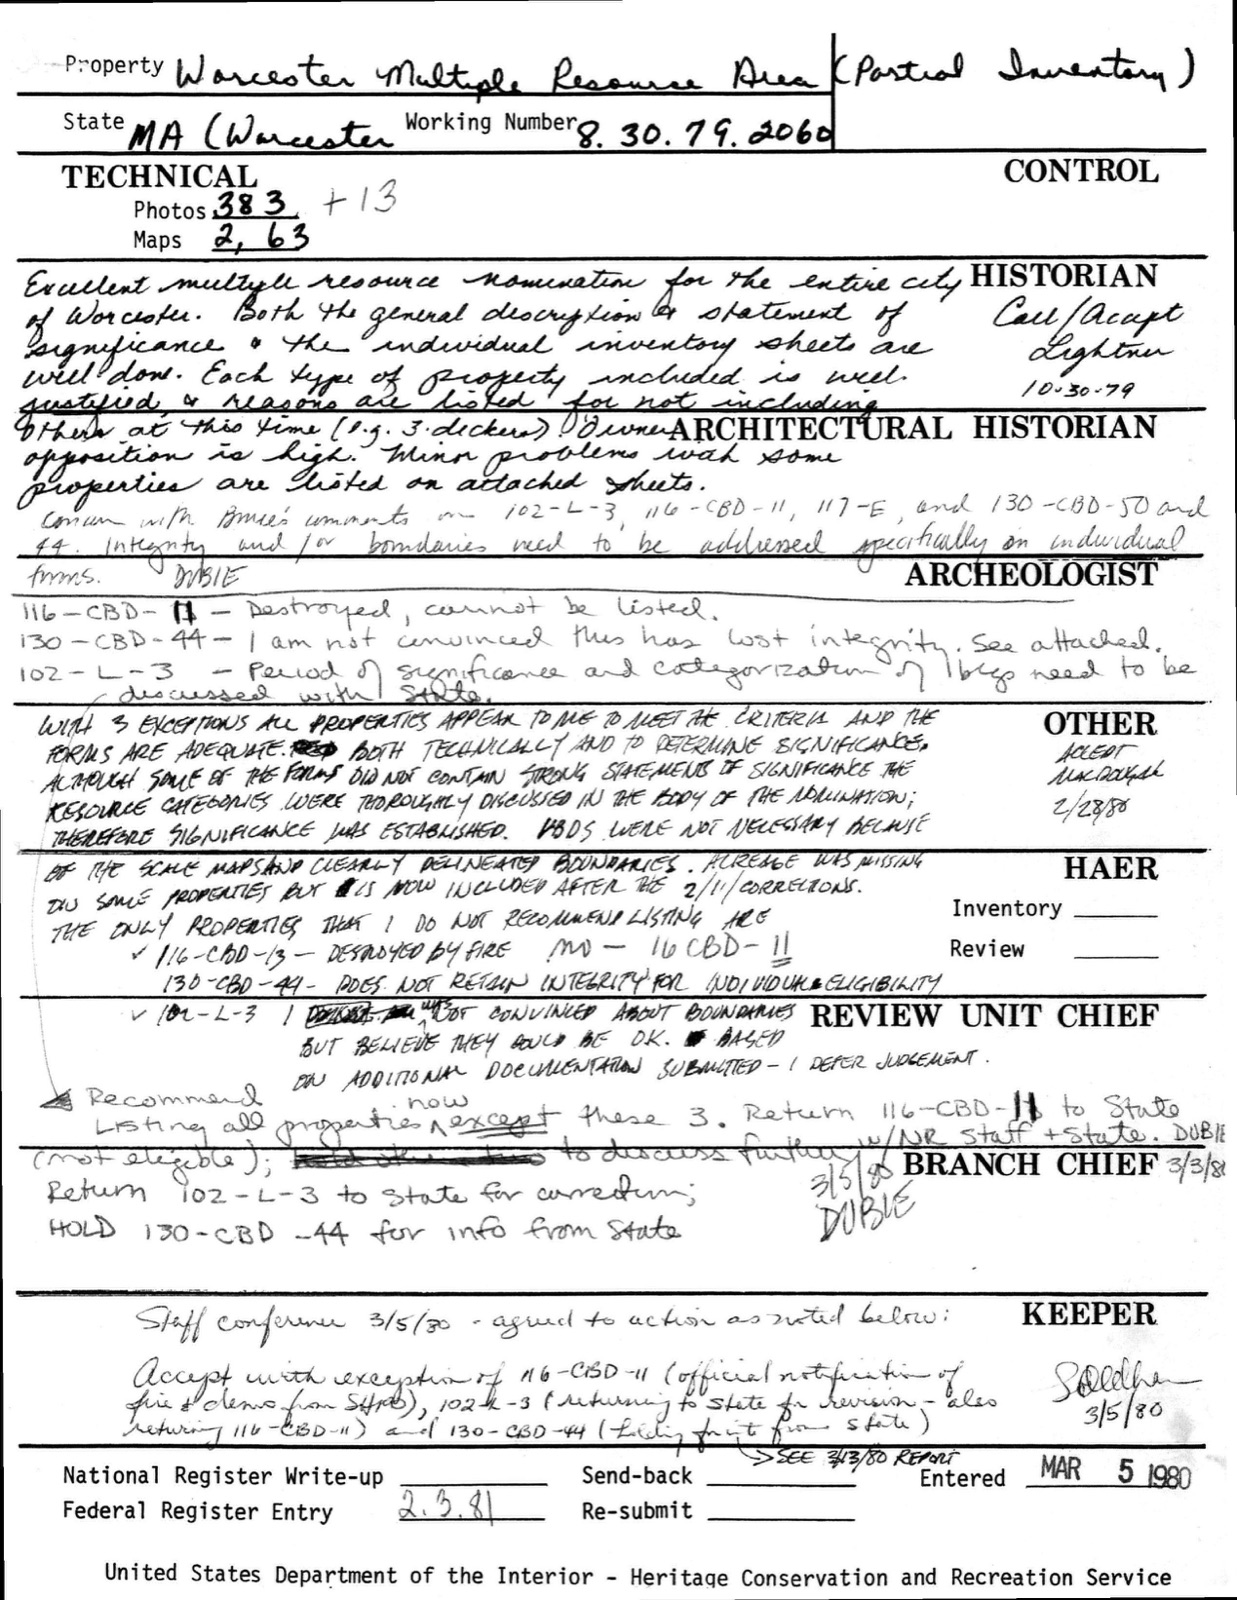 Property Worcester Multiple Resource Area (Partial Inventory)
State MA (Worcester Working Number 8.30.79.2060
TECHNICAL CONTROL
Photos 383 + 13
Maps 2, 63
Excellent multiple resource nomination for the entire city HISTORIAN
of Worcester. Both the general description & statement of Call/Accept
significance & the individual inventory sheets are Lightner
well done. Each type of property included is well 10-30-79
justified, & reasons are listed for not including
others at this time (e.g. 3-deckers). Owner ARCHITECTURAL HISTORIAN
opposition is high. Minor problems with some
properties are listed on attached sheets.
Concur with Bruce's comments on 102-L-3, 116-CBD-11, 117-E, and 130-CBD-50 and
44. Integrity and/or boundaries need to be addressed specifically on individual
forms. DUBIE ARCHEOLOGIST
116-CBD-11 - Destroyed, cannot be listed.
130-CBD-44 - I am not convinced this has lost integrity. See attached.
102-L-3 - Period of significance and categorization of bldgs need to be
discussed with State.
WITH 3 EXCEPTIONS ALL PROPERTIES APPEAR TO ME TO MEET THE CRITERIA AND THE OTHER
FORMS ARE ADEQUATE BOTH TECHNICALLY AND TO DETERMINE SIGNIFICANCE. ACCEPT
ALTHOUGH SOME OF THE FORMS DID NOT CONTAIN STRONG STATEMENTS OF SIGNIFICANCE THE MACDOUGAL
RESOURCE CATEGORIES WERE THOROUGHLY DISCUSSED IN THE BODY OF THE NOMINATION; 2/28/80
THEREFORE SIGNIFICANCE WAS ESTABLISHED. VBDS WERE NOT NECESSARY BECAUSE
OF THE SCALE MAPS AND CLEARLY DELINEATED BOUNDARIES. ACREAGE WAS MISSING HAER
ON SOME PROPERTIES BUT IS NOW INCLUDED AFTER THE 2/11/CORRECTIONS.
THE ONLY PROPERTIES THAT I DO NOT RECOMMEND LISTING ARE Inventory
✓ 116-CBD-13 - DESTROYED BY FIRE NO - 116 CBD-11 Review
130-CBD-44 - DOES NOT RETAIN INTEGRITY FOR INDIVIDUAL ELIGIBILITY
✓ 102-L-3 I WAS NOT CONVINCED ABOUT BOUNDARIES REVIEW UNIT CHIEF
BUT BELIEVE THEY COULD BE OK. BASED
ON ADDITIONAL DOCUMENTATION SUBMITTED - I DEFER JUDGEMENT.
Recommend
Listing all properties now except these 3. Return 116-CBD-11 to State
(not eligible); to discuss further w/NR Staff + State. DUBIE
BRANCH CHIEF 3/3/80
Return 102-L-3 to State for correction; 3/5/80
HOLD 130-CBD-44 for info from State DUBIE
Staff conference 3/5/80 - agreed to action as noted below: KEEPER
Accept with exception of 116-CBD-11 (official notification of
fire & demo from SHPO), 102-L-3 (returning to State for revision - also 3/5/80
returning 116-CBD-11) and 130-CBD-44 (holding for it from State)
→ SEE 3/13/80 REPORT
National Register Write-up Send-back Entered MAR 5 1980
Federal Register Entry 2.3.81 Re-submit
United States Department of the Interior - Heritage Conservation and Recreation Service